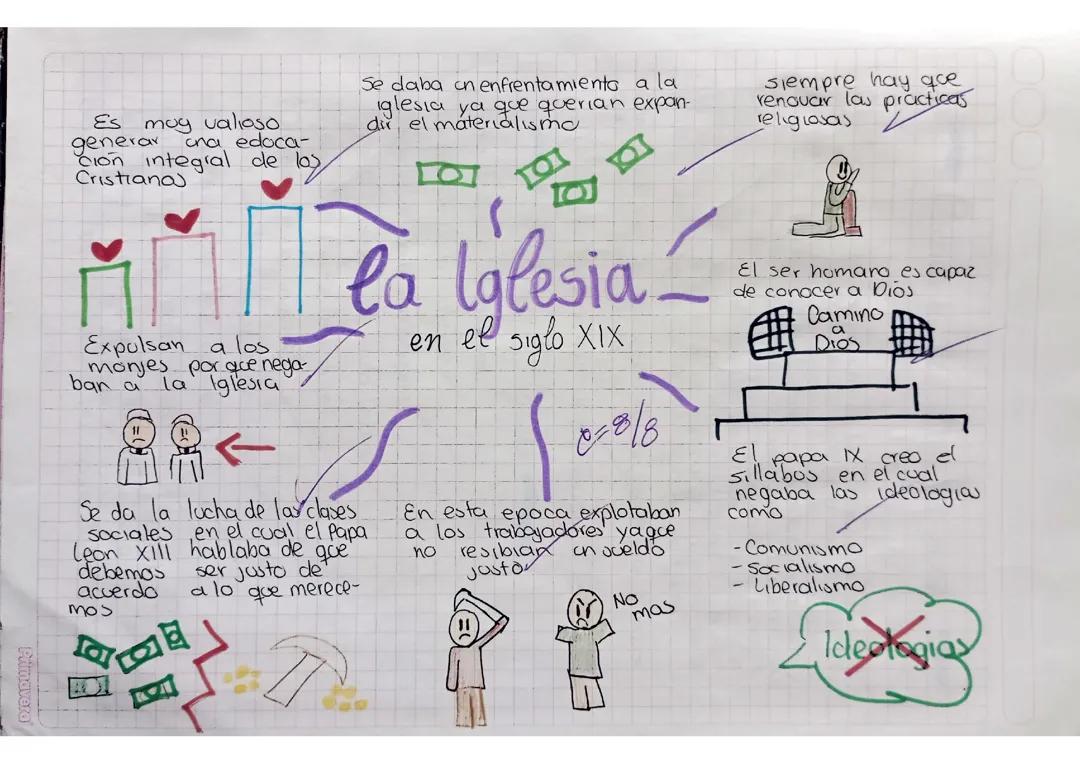 Se daba un enfrentamiento a la
iglesia ya que querian expan-
dir el materialismo
siempre hay que
renovar las practicas
religiosas
Es muy valioso
generar una educa-
ción integral de los
Cristianos
la Iglesia
en el siglo XIX
El ser humano es capaz
de conocer a Dios
Camino
a
Dios
Expulsan a los
monjes porque nega-
ban a la Iglesia
c=8/8
El papa IX creo el
sillabos en el cual
negaba las ideologias
como
-Comunismo
-Socialismo
-Liberalismo
Se da la lucha de las clases
sociales en el cual el Papa
Leon XIII hablaba de que
debemos ser justo de
acuerdo a lo que merece-
mos
En esta epoca explotaban
a los trabajadores ya que
no resibian un sueldo
justo
No
mas
Ideologias
Primavera